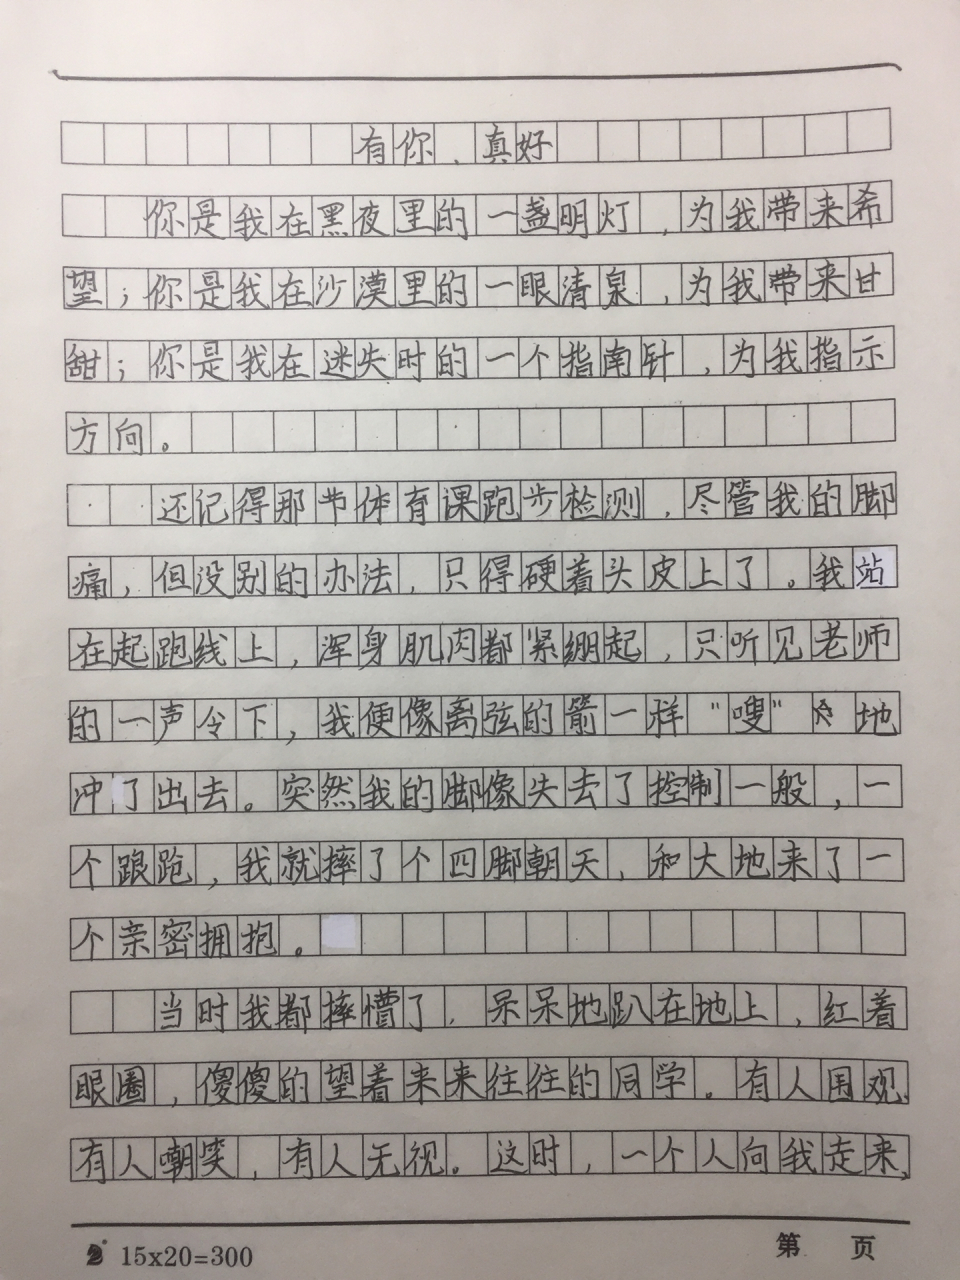 有你，真好
你是我在黑夜里的一盏明灯，为我带来希
望；你是我在沙漠里的一眼清泉，为我带来甘
甜；你是我在迷失时的一个指南针，为我指示
方向。
还记得那节体育课跑步检测，尽管我的脚
痛，但没别的办法，只得硬着头皮上了。我站
在起跑线上，浑身肌肉都紧绷起，只听见老师
的一声令下，我便像离弦的箭一样“嗖”地
冲了出去。突然我的脚像失去了控制一般，一
个踉跄，我就摔了个四脚朝天，和大地来了一
个亲密拥抱。
当时我都摔懵了，呆呆地趴在地上，红着
眼圈，傻傻的望着来来往往的同学。有人围观，
有人嘲笑，有人无视。这时，一个人向我走来，
15x20=300
第 页